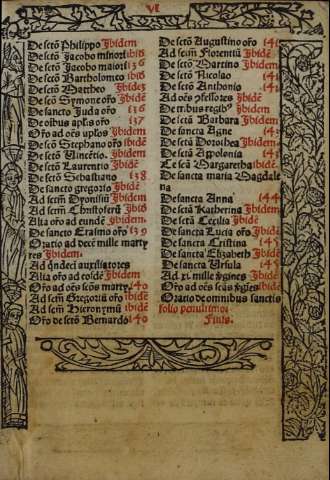 VI
De sctō Philippo Ibidem
De sctō Jacobo minori ibidē
De sctō Jacobo maiori 136
De sctō Bartholomeo ibidē
De sctō Mattheo Ibidez
De scō Symone oro Ibidē
De sancto Juda oro 136
De oibus aplis oro 136
Oro ad oēs aplos Ibidem
De scō Stephano oro ibidē
De sctō Vincētio Ibidem
De sctō Laurentio Ibidē
De sctō Sebastiano 138
De sancto gregorio Ibidē
Ad sctm Dyonisiū Ibidem
Ad sctm Christoferū Ibidē
Alia oro ad eundē Ibidem
De sancto Erasmo oro 139
Oratio ad decē mille marty
res Ibidem.
Ad qndeci auxiliatores
Alia oro ad eosdē Ibidem
Oro ad oēs scōs marty. 140
Ad sctm Gregoriū oro ibidē
Ad sctm Hieronymū ibidē
Oro de sctō Bernardo 140
De sctō Augustino oro 141
Ad sctm Florentiū Ibidē
De sctō Martino Ibidem
De sctō Nicolao 141
De sctō Anthonio 141
Ad oēs pfessores Ibidē
De tribus regibus Ibidem
De sctā Barbara Ibidem
De sancta Agne 143
De sctā Dorothea Ibidem
De sctā Apolonia 143
De scā Margaretha ibidē
De sancta maria Magdale
na
De sancta Anna 144
De sctā Katherina Ibidem
De sctā Cecilia Ibidē
De sancta Lucia oro Ibidē
De sancta Cristina 145
De sancta Elizabeth Ibidē
De sancta Ursula 145
Ad xi. mille vgines Ibidem
Ad oēs scās vgies Ibidē
Oratio de omnibus sanctis
folio penultimo:
Finis.